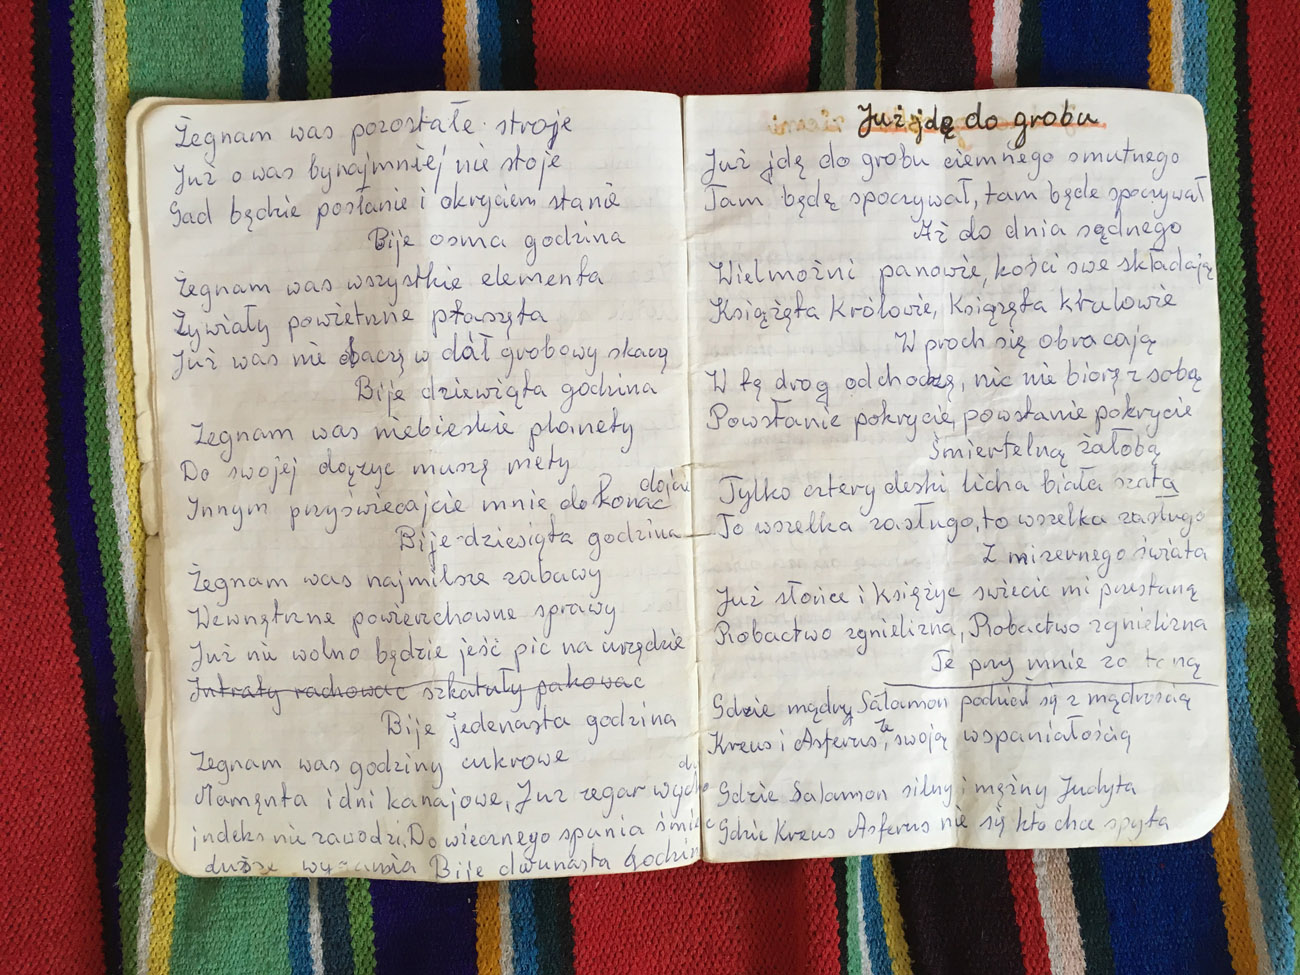 Żegnam was pozostałe stroje
Już o was bynajmniej nie stoje
Gad będzie posłanie i okryciem stanie
Bije osma godzina
Żegnam was wszystkie elementa
Żywiały powietrzne ptaszęta
Już was nie obaczę w dół grobowy skaczę
Bije dziewiąta godzina
Żegnam was niebieskie planety
Do swojej dążyc muszę mety
Innym przyświecajcie mnie do konać dojcie
Bije dziesiąta godzina
Żegnam was najmilsze zabawy
Wewnętrzne powierzchowne sprawy
Już nie wolno będzie jeść pic na urzędzie
Intraty rachowac szkatuły pakowac
Bije jedenasta godzina
Żegnam was godziny cukrowe
Mamęnta i dni kanajowe, Już zegar
indeks nie zawodzi. Do wiecznego spania
dusze Bije dwunasta Godzin
Już jdę do grobu
Już jdę do grobu ciemnego smutnego
Tam będę spoczywał, tam będe spoczywał
Aż do dnia sądnego
Wielmożni panowie, kości swe składają
Książęta Królowie, Książęta krulowie
W proch się obracają
W tę drog odchodzę, nic nie biorę z sobą
Powstanie pokrycie, powstanie pokrycie
Śmiertelną żałobą
Tylko cztery deski licha biała szata
To wszelka zasługo, to wszelka zasługo
Z mizernego świata
Już słońce i Księżyc swiecic mi przestaną
Robactwo zgnielizna, Robactwo zgnielizna
Te przy mnie zo taną
Gdzie mądry Salamon podział sję z mądroscią
Kreus i Asferus, ze swoją wspaniałością
Gdzie Salamon silny i mężny Judyta
Gdzie Kreus Asferus nie sję kto chce spyta